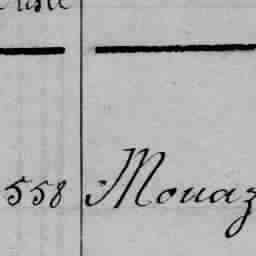 558 Mouaz